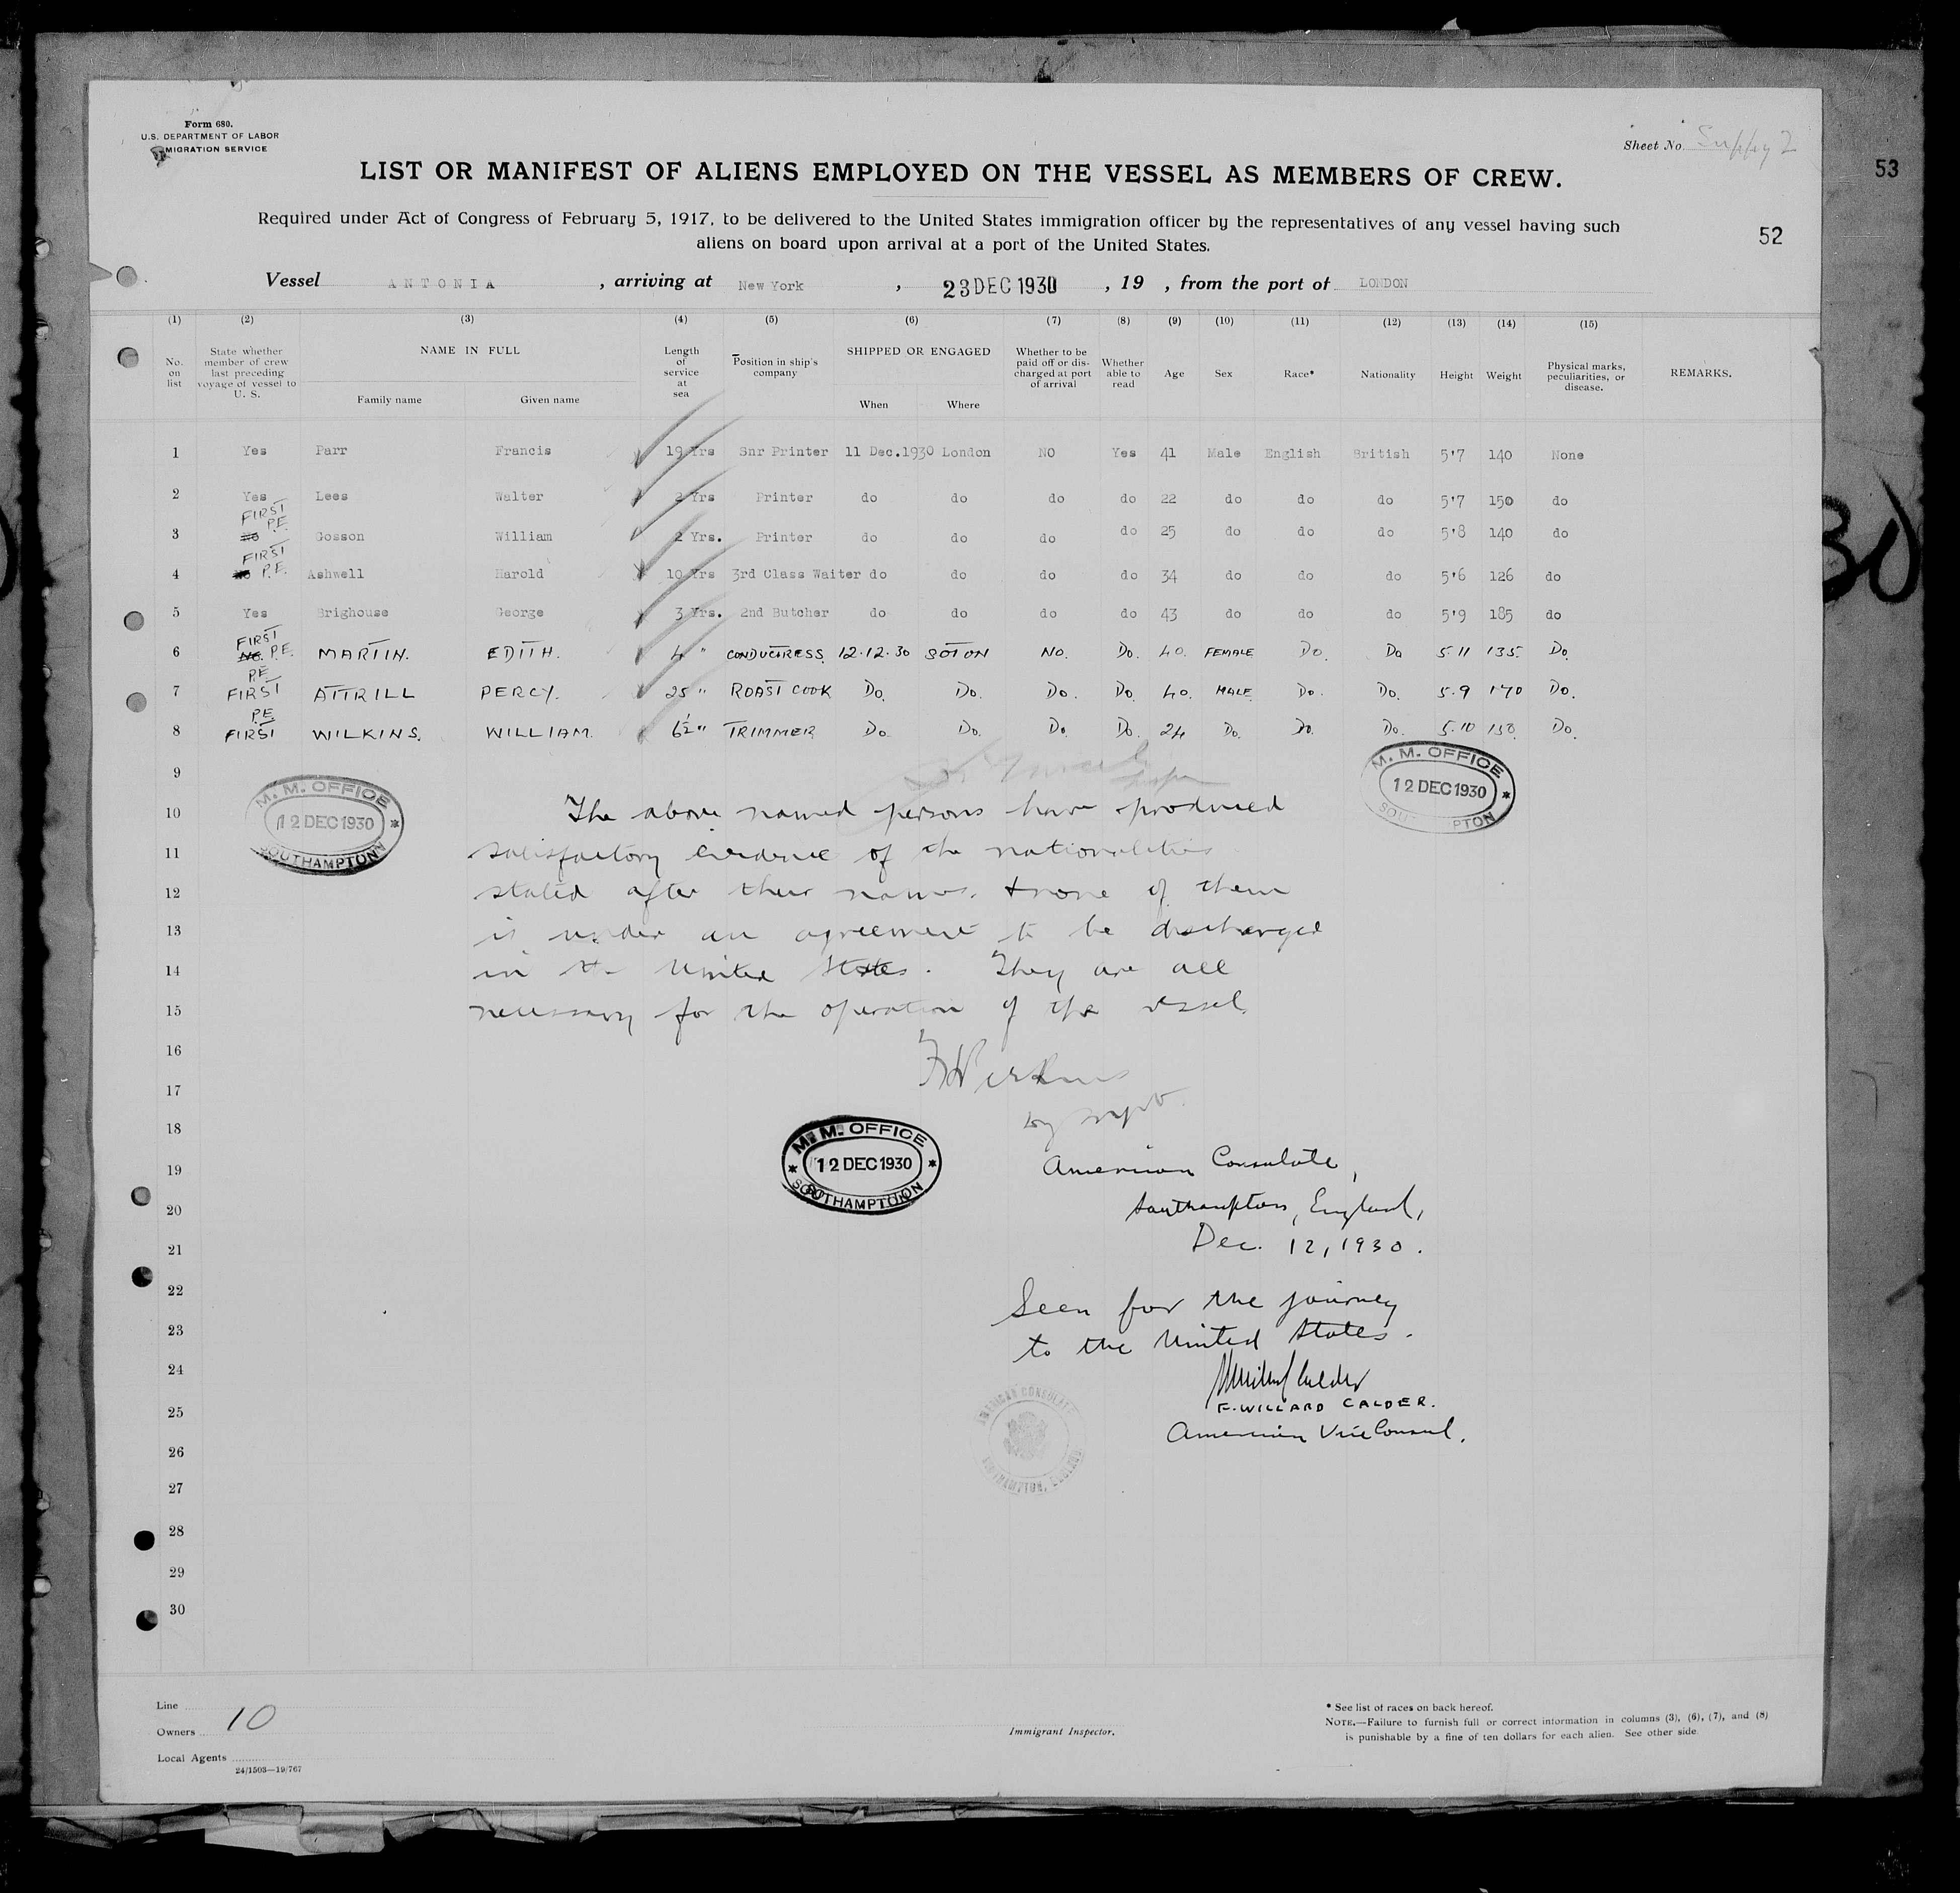 Form 680.
U.S. DEPARTMENT OF LABOR
MIGRATION SERVICE
Sheet No. Suppy 2
53
LIST OR MANIFEST OF ALIENS EMPLOYED ON THE VESSEL AS MEMBERS OF CREW.
Required under Act of Congress of February 5, 1917, to be delivered to the United States immigration officer by the representatives of any vessel having such
aliens on board upon arrival at a port of the United States.
52
Vessel ANTONIA , arriving at New York , 23 DEC 1930 , 19 , from the port of LONDON
(1) (2) (3) (4) (5) (6) (7) (8) (9) (10) (11) (12) (13) (14) (15)
No. on list State whether member of crew last preceding voyage of vessel to U. S. NAME IN FULL Family name Given name Length of service at sea Position in ship's company SHIPPED OR ENGAGED When Where Whether to be paid off or discharged at port of arrival Whether able to read Age Sex Race* Nationality Height Weight Physical marks, peculiarities, or disease. REMARKS.
1 Yes Parr Francis 19 Yrs Snr Printer 11 Dec.1930 London NO Yes 41 Male English British 5'7 140 None
2 Yes Lees Walter 2 Yrs Printer do do do do 22 do do do 5'7 150 do
FIRST P.E.
3 No Cosson William 2 Yrs. Printer do do do do 25 do do do 5'8 140 do
FIRST
4 No P.E. Ashwell Harold 10 Yrs 3rd Class Waiter do do do do 34 do do do 5'6 126 do
5 Yes Brighouse George 3 Yrs. 2nd Butcher do do do do 43 do do do 5'9 185 do
FIRST
6 No. P.E. MARTIN. EDITH. 4 " CONDUCTRESS 12.12.30 SOTON NO. Do. 40. FEMALE Do. Do 5.11 135. Do.
P.E.
7 FIRST ATTRILL PERCY. 25 " ROAST COOK Do. Do. Do. Do. 40. MALE Do. Do. 5.9 170 Do.
P.E.
8 FIRST WILKINS. WILLIAM. 6½ " TRIMMER Do. Do. Do. Do. 24 Do. Do. Do. 5.10 Do.
9
M. M. OFFICE
12 DEC 1930
SOUTHAMPTON
M. M. OFFICE
12 DEC 1930
SOU PTON
10 The above named persons have produced
11 satisfactory evidence of the nationalities
12 stated after their names. & none of them
13 is under an agreement to be discharged
14 in the United States. They are all
15 necessary for the operation of the vessel
16
17
18
M. M. OFFICE
12 DEC 1930
SOUTHAMPTON
19 American Consulate,
20 Southampton, England,
21 Dec. 12, 1930.
22 Seen for the journey
23 to the United States.
24
25 F. WILLARD CALDER.
26 American Vice Consul.
AMERICAN CONSULATE
SOUTHAMPTON, ENGLAND
27
28
29
30
Line
Owners 10
Local Agents
24/1503—19/767
Immigrant Inspector.
* See list of races on back hereof.
NOTE.—Failure to furnish full or correct information in columns (3), (6), (7), and (8)
is punishable by a fine of ten dollars for each alien. See other side.